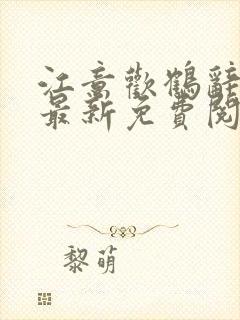 江意歡鶴辭
最新免費閱
黎萌